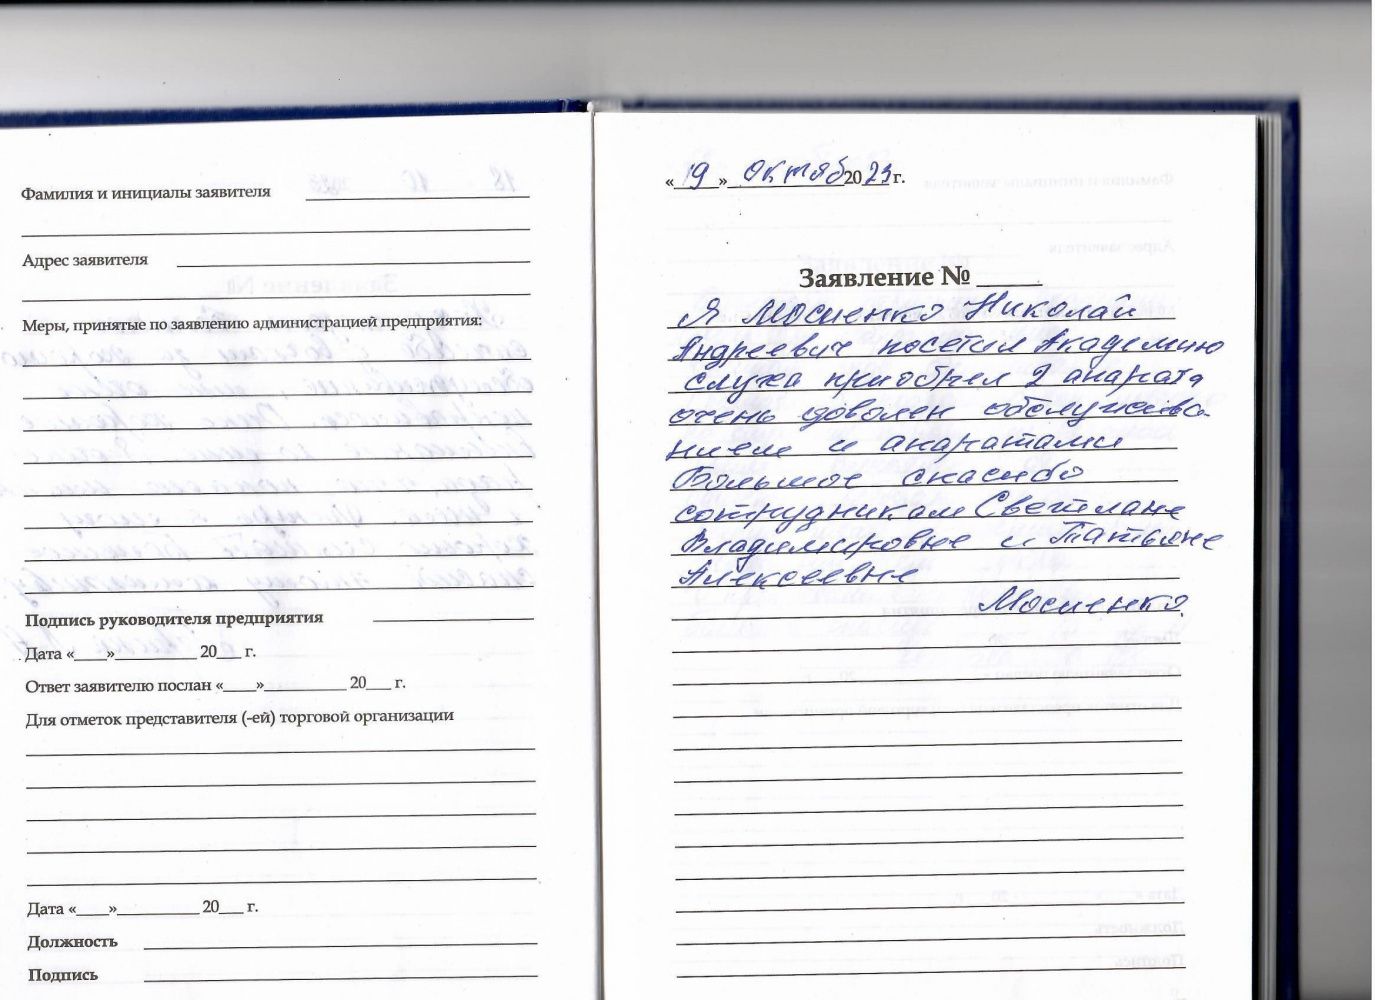 Фамилия и инициалы заявителя
Адрес заявителя
Меры, принятые по заявлению администрацией предприятия:
Подпись руководителя предприятия
Дата «____»__________ 20___ г.
Ответ заявителю послан «____»__________ 20___ г.
Для отметок представителя (-ей) торговой организации
Дата «____»__________ 20___ г.
Должность
Подпись
«19» октяб 2023 г.
Заявление № _____
Я Мосиенко Николай
Андреевич посетил Академию
слуха приобрел 2 апарата
очень доволен обслужива-
нием и апаратами
Большое спасибо
сотрудникам Светлане
Владимировне и Татьяне
Алексеевне
Мосиенко